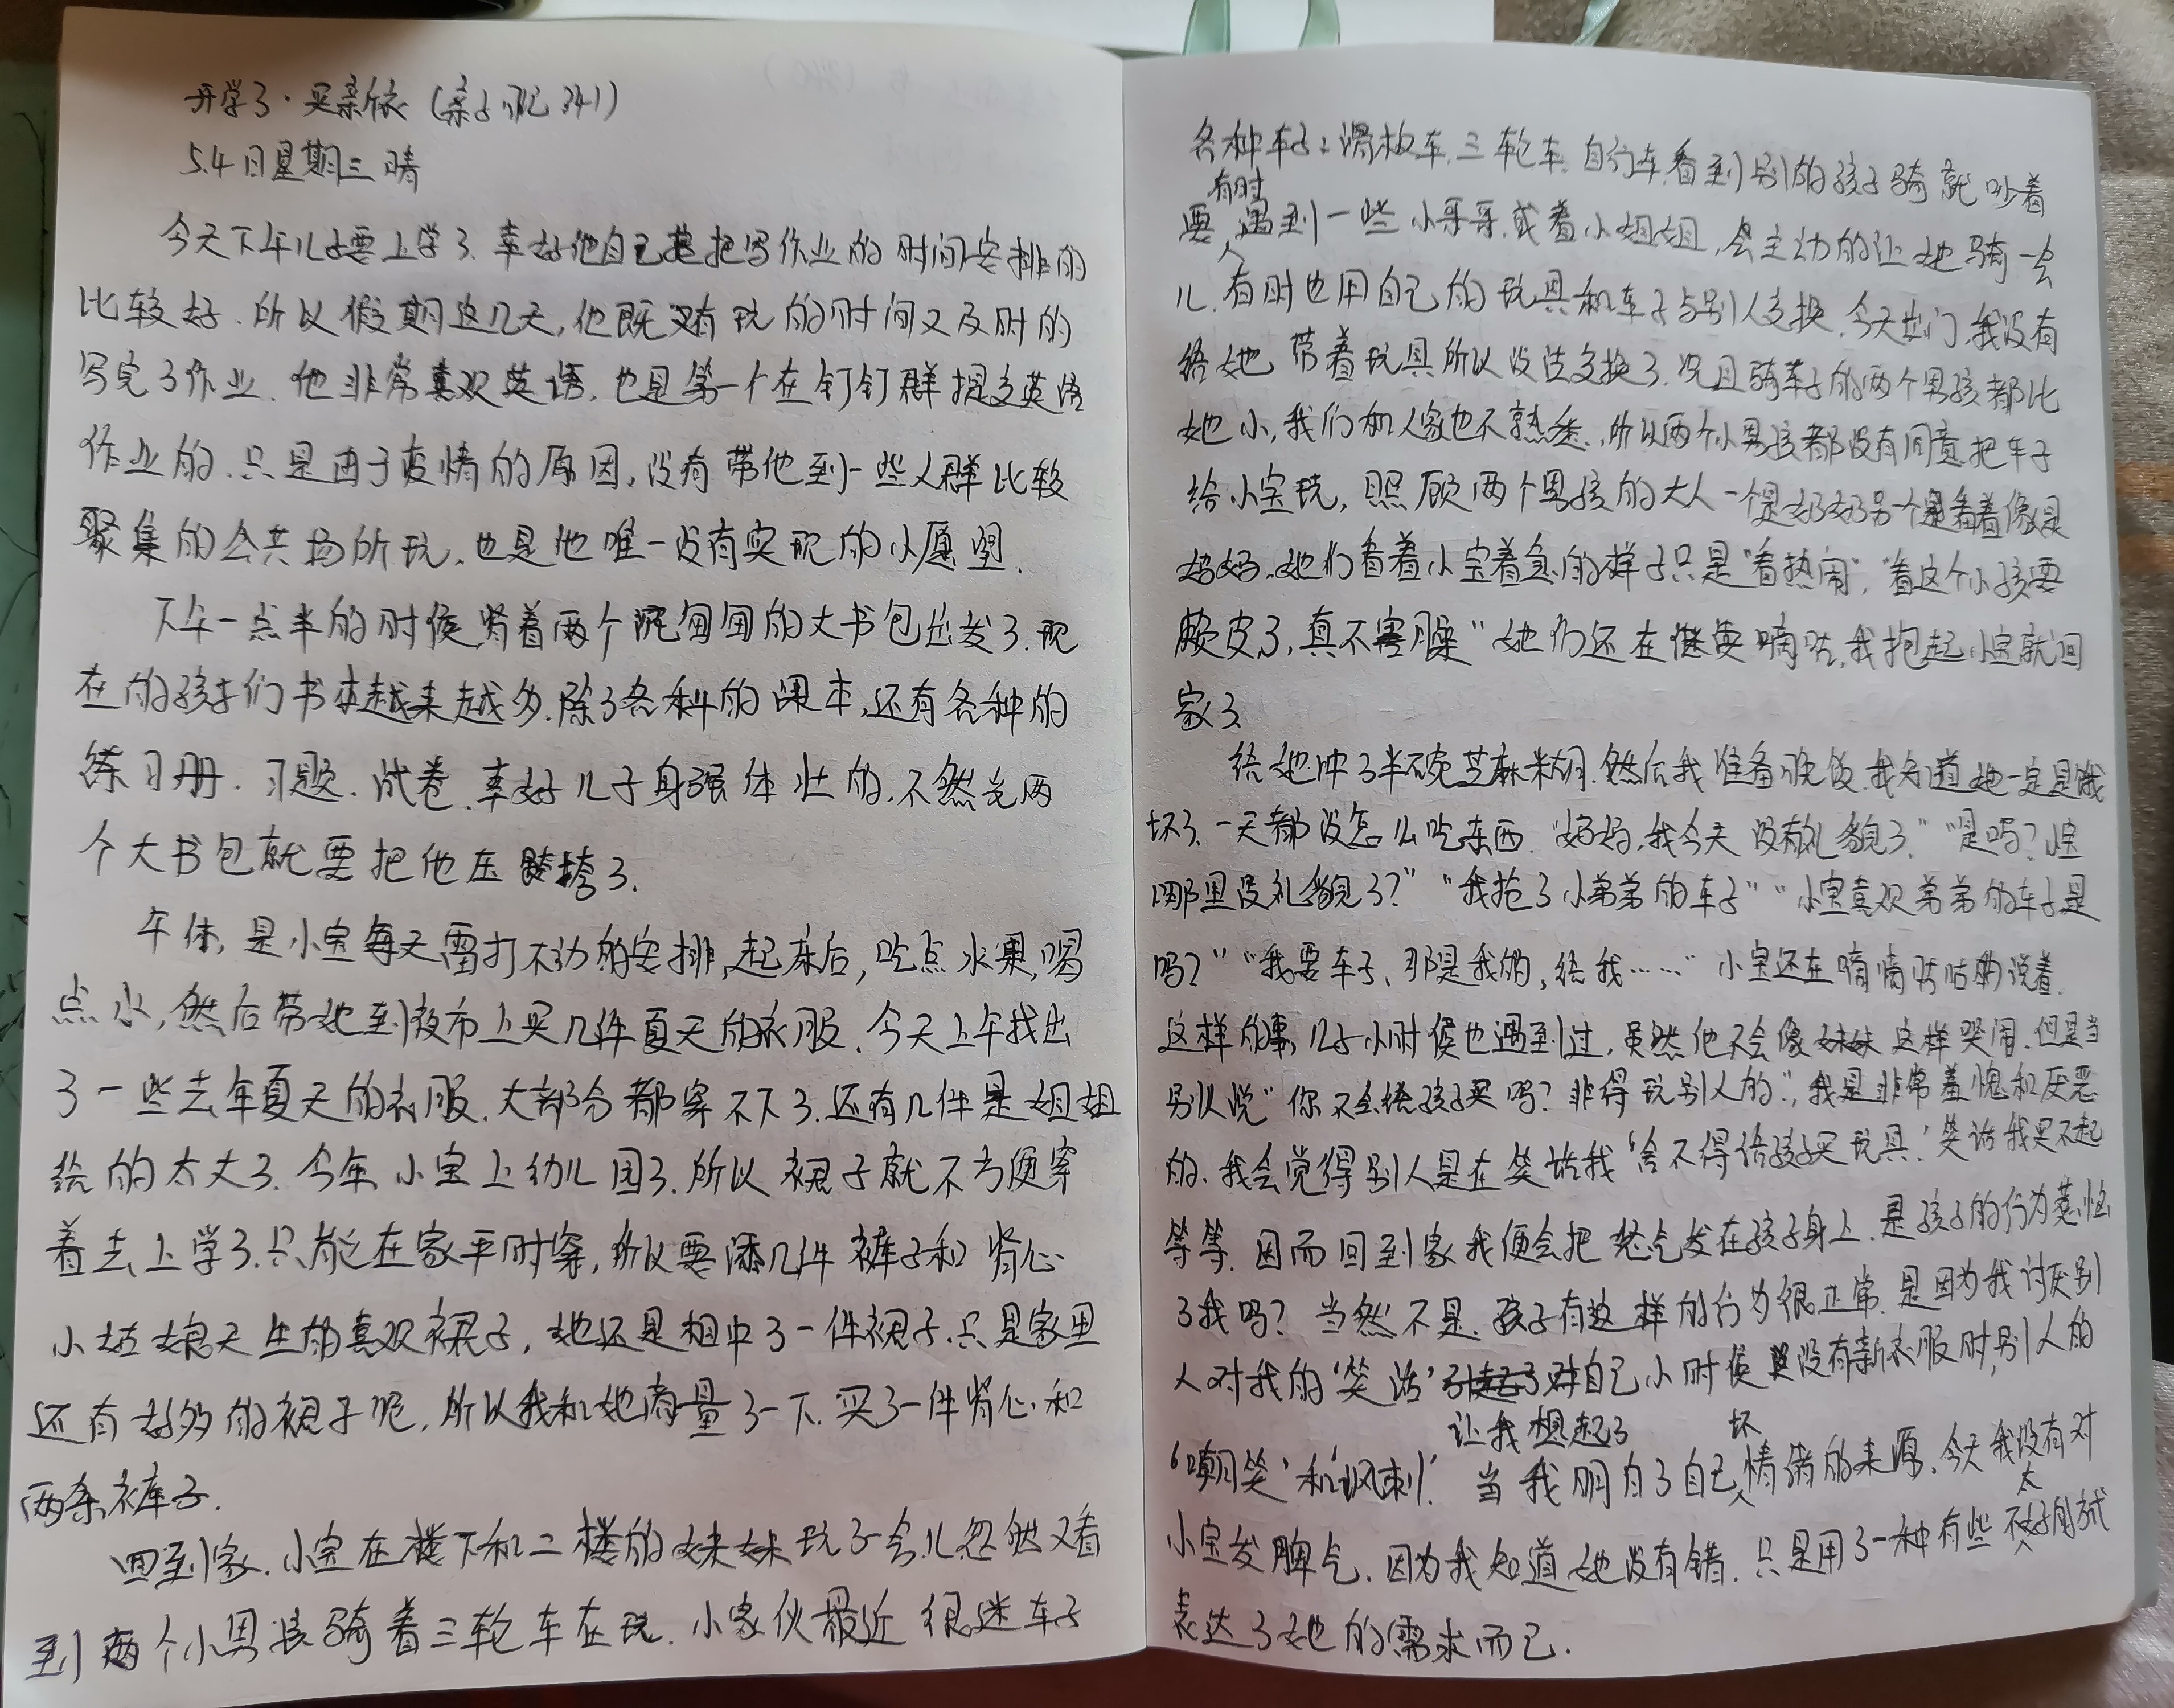 开学了·买新衣(亲子日记341)
5.4日星期三 晴
今天下午儿子要上学了.幸好他自己把写作业的时间安排的
比较好.所以假期这几天,他既有玩的时间又及时的
写完了作业.他非常喜欢英语.也是第一个在钉钉群提交英语
作业的.只是由于疫情的原因,没有带他到一些人群比较
聚集的公共场所玩.也是他唯一没有实现的小愿望.
下午一点半的时侯背着两个沉甸甸的大书包出发了.现
在的孩子们书本越来越多.除了各科的课本,还有各种的
练习册.习题.试卷.幸好儿子身强体壮的,不然光两
个大书包就要把他压垮了.
午休,是小宝每天雷打不动的安排,起床后,吃点水果,喝
点水,然后带她到夜市上买几件夏天的衣服.今天上午找出
了一些去年夏天的衣服.大部分都穿不下了.还有几件是姐姐
给的太大了.今年小宝上幼儿园了.所以裙子就不方便穿
着去上学了.只能在家平时穿,所以要添几件裤子和背心
小姑娘天生的喜欢裙子,她还是相中了一件裙子.只是家里
还有好多的裙子呢,所以我和她商量了一下.买了一件背心和
两条裤子.
回到家.小宝在楼下和二楼的妹妹玩了一会儿忽然又看
到两个小男孩骑着三轮车在玩.小家伙最近很迷车子
各种车子:滑板车.三轮车.自行车.看到别的孩子骑就吵着
要.有时遇到一些小哥哥.或着小姐姐,会主动的让她骑一会
儿.有时也用自己的玩具和车子与别人交换.今天出门.我没有
给她带着玩具所以没法交换了.况且骑车子的两个男孩都比
她小,我们和人家也不熟悉.所以两个小男孩都没有同意把车子
给小宝玩,照顾两个男孩的大人一个是奶奶另一个看着像是
妈妈.她们看着小宝着急的样子只是“看热闹”,“看这个小孩要
赖皮了,真不害臊”她们还在继续嘀咕,我抱起小宝就回
家了.
给她冲了半碗芝麻米糊.然后我准备晚饭.我知道她一定是饿
坏了.一天都没怎么吃东西.“妈妈,我今天没有礼貌了.”“是吗?小宝
哪里没礼貌了?”“我抢了小弟弟的车子”“小宝喜欢弟弟的车子是
吗?”“我要车子、那是我的,给我……”小宝还在嘀嘀咕咕的说着.
这样的事,儿子小时侯也遇到过,虽然他不会像妹妹这样哭闹.但是当
别人说“你不会给孩子买吗?非得玩别人的.”,我是非常羞愧和厌恶
的.我会觉得别人是在笑话我‘舍不得给孩子买玩具.’笑话我买不起
等等.因而回到家我便会把怒气发在孩子身上.是孩子的行为惹恼
了我吗?当然不是.孩子有这样的行为很正常.是因为我讨厌别
人对我的‘笑话’让我想起了自己小时侯没有新衣服时,别人的
‘嘲笑’和‘讽刺’.当我明白了自己坏情绪的来源.今天我没有对
小宝发脾气.因为我知道她没有错.只是用了一种有些不太好的方式
表达了她的需求而已.